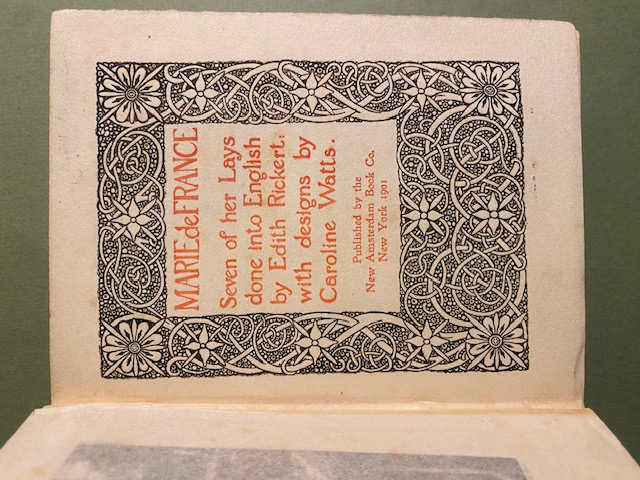 MARIE de FRANCE
Seven of her Lays
done into English
by Edith Rickert:
with designs by
Caroline Watts.
Published by the
New Amsterdam Book Co.
New York 1901